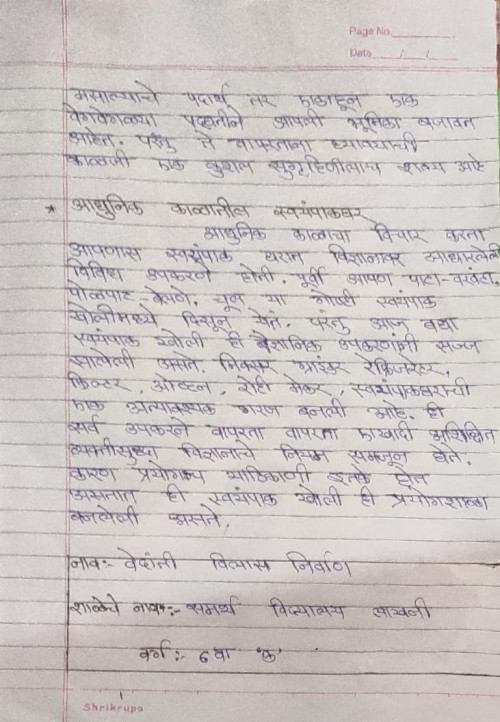 Page No.
Date / /
मसाल्याचे पदार्थ तर एकाहून एक
वेगवेगळ्या पद्धतीने आपली भूमिका बजावत
आहेत. परंतु ते वापरताना घ्यावयाची
काळजी एक कुशल सुगृहिणीलाच शक्य आहे
* आधुनिक काळातील स्वयंपाकघर
आधुनिक काळाचा विचार करता
आपणास स्वयंपाक घरात विज्ञानावर आधारलेली
विविध उपकरणे होती. पूर्वी आपण पाटा-वरवंटा,
पोळपाट-बेलणे, चूल या गोष्टी स्वयंपाक
खोलीमध्ये दिसून येत. परंतु आज बघा
स्वयंपाक खोली ही वैज्ञानिक उपकरणांनी सज्ज
झालेली असते. मिक्सर ग्राइंडर रेफ्रिजरेटर,
फिल्टर, ओव्हन, रोटी मेकर, स्वयंपाकघराची
एक अत्यावश्यक गरज बनली आहे. ही
सर्व उपकरणे वापरता वापरता एखादी अशिक्षित
व्यक्तीसुध्दा विज्ञानाचे नियम समजून घेते.
कारण प्रयोगच याठिकाणी इतके होत
असतात ही स्वयंपाक खोली ही प्रयोगशाळा
बनलेली असते.
नाव:- वेदांती विलास निर्वाण
शाळेचे नाव:- समर्थ विद्यालय लाखनी
वर्ग:- 6 वा 'क'
Shrikrupa